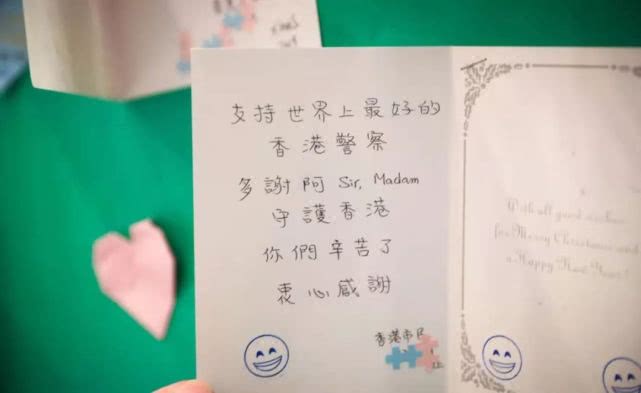 支持世界上最好的
香港警察
多謝阿 Sir, Madam
守護香港
你們辛苦了
衷心感謝
香港市民
With all good wishes
for Merry Christmas and
a Happy New Year!